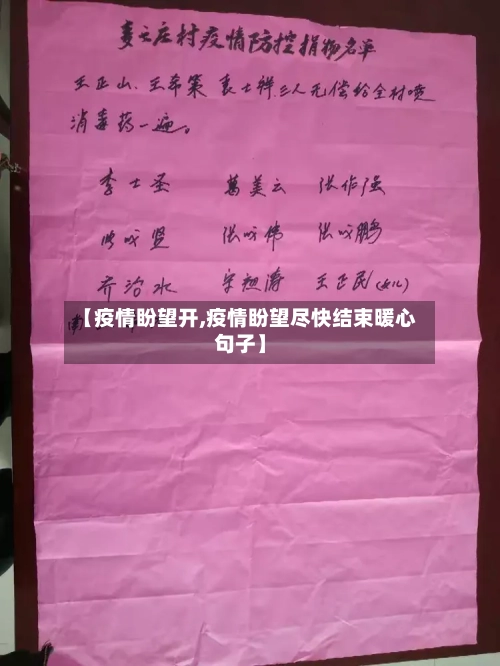 麦王庄村疫情防控捐物名单
王正山、王希策 袁士祥三人无偿给全村喷
消毒药一遍。
李士圣 葛美云 张作强
张成伟 张成鹏
乔治水 宋祖涛 王正民(女儿)
【疫情盼望开,疫情盼望尽快结束暖心
句子】
南